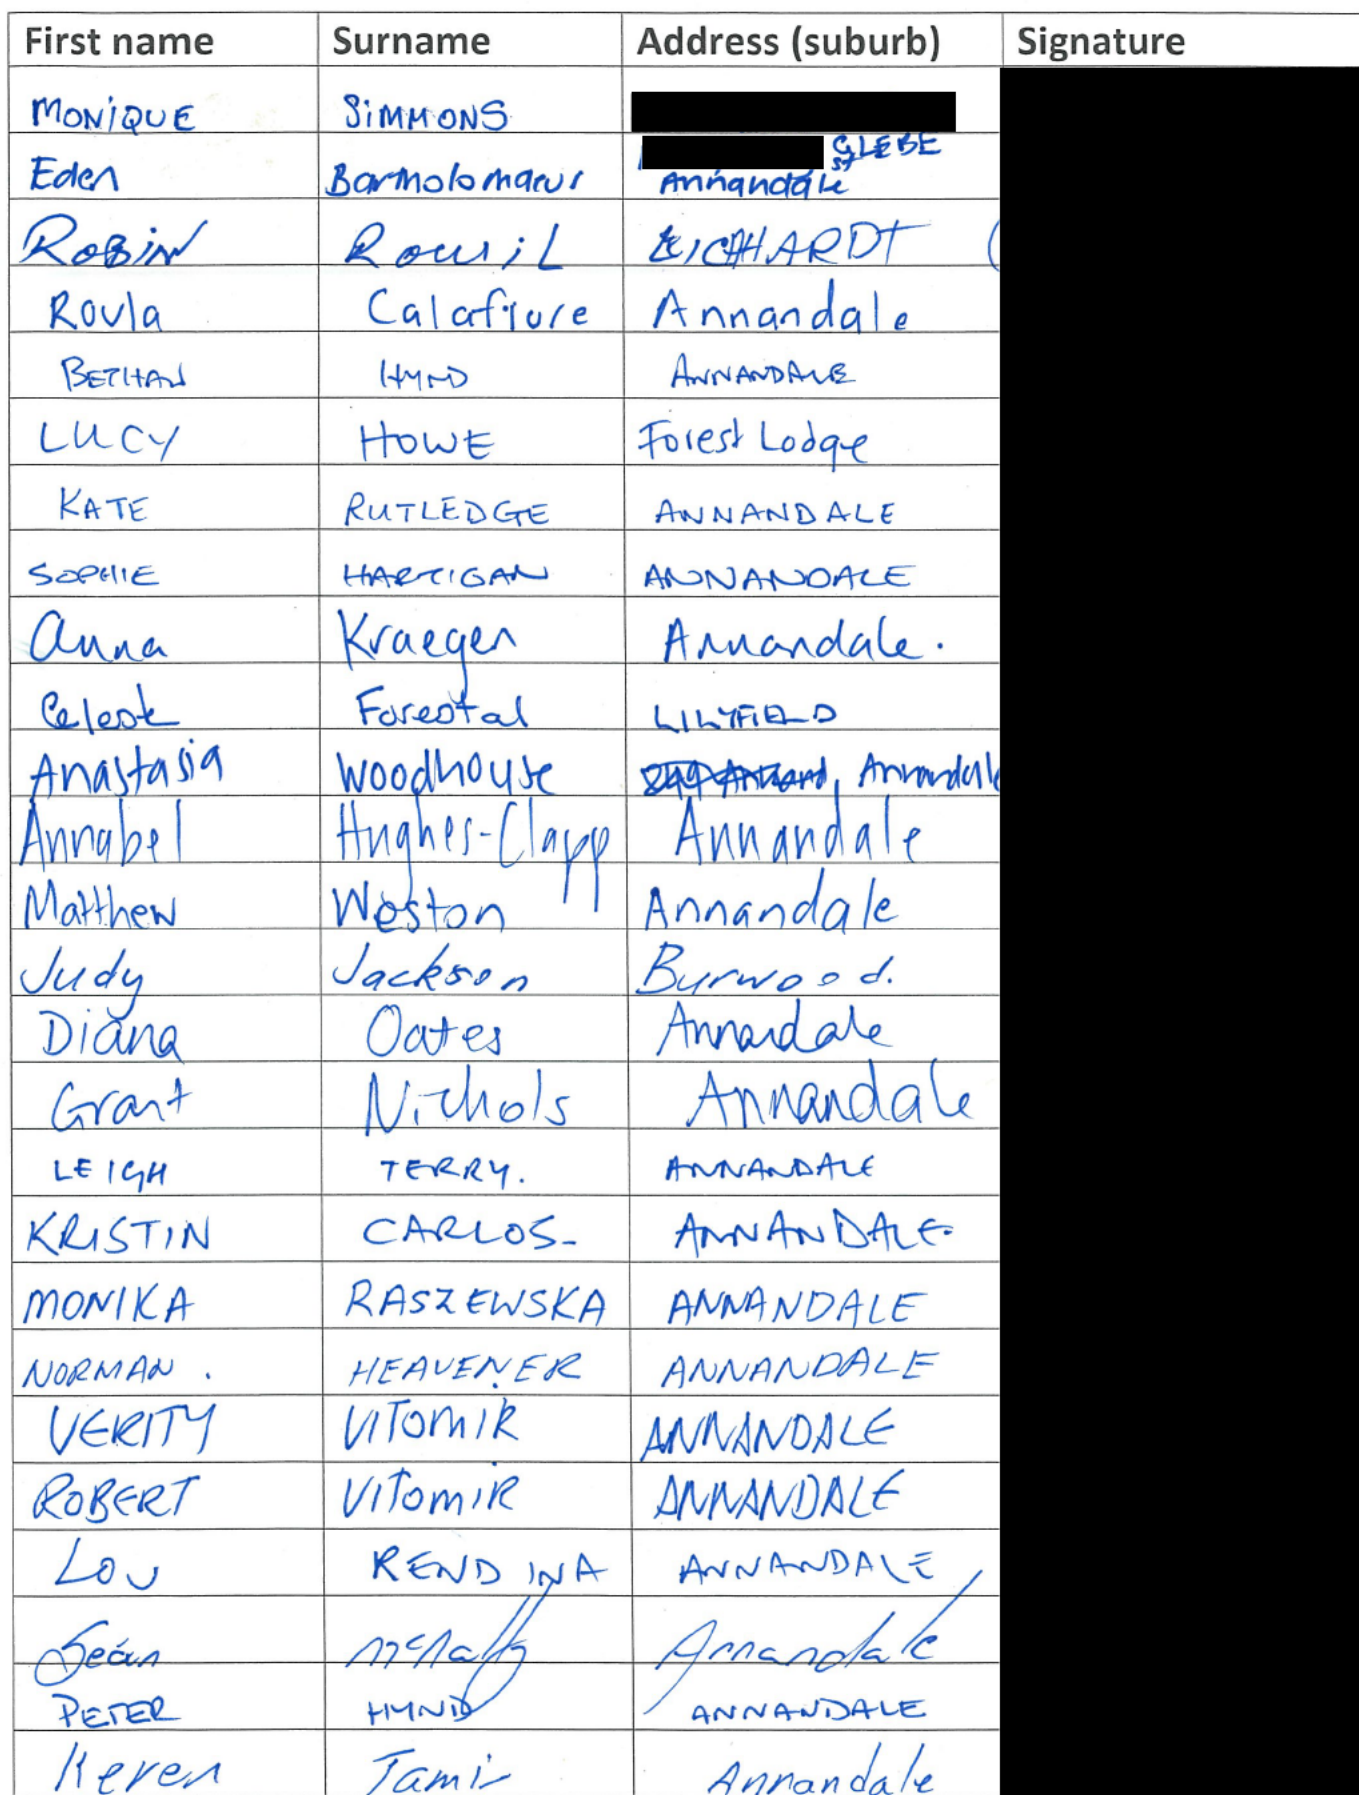 First name Surname Address (suburb) Signature
MONIQUE SIMMONS
GLEBE
Eden Bartholomaeus st Annandale
ROBIN LEICHHARDT
Roula Calafiore Annandale
BETHAN HYND ANNANDALE
LUCY HOWE Forest Lodge
KATE RUTLEDGE ANNANDALE
SOPHIE HARTIGAN ANNANDALE
Anna Kraegen Annandale.
Celeste Forestal LILYFIELD
Anastasia Woodhouse Annandale
Annabel Hughes-Clapp Annandale
Matthew Weston Annandale
Judy Jackson Burwood.
Diana Oates Annandale
Grant Nichols Annandale
LEIGH TERRY. ANNANDALE
KRISTIN CARLOS- ANNANDALE.
MONIKA RASZEWSKA ANNANDALE
NORMAN. HEAVENER ANNANDALE
VERITY VITOMIR ANNANDALE
ROBERT VITOMIR ANNANDALE
LOU RENDINA ANNANDALE
Seán McNally Annandale
PETER HYND ANNANDALE
Keren Tamir Annandale